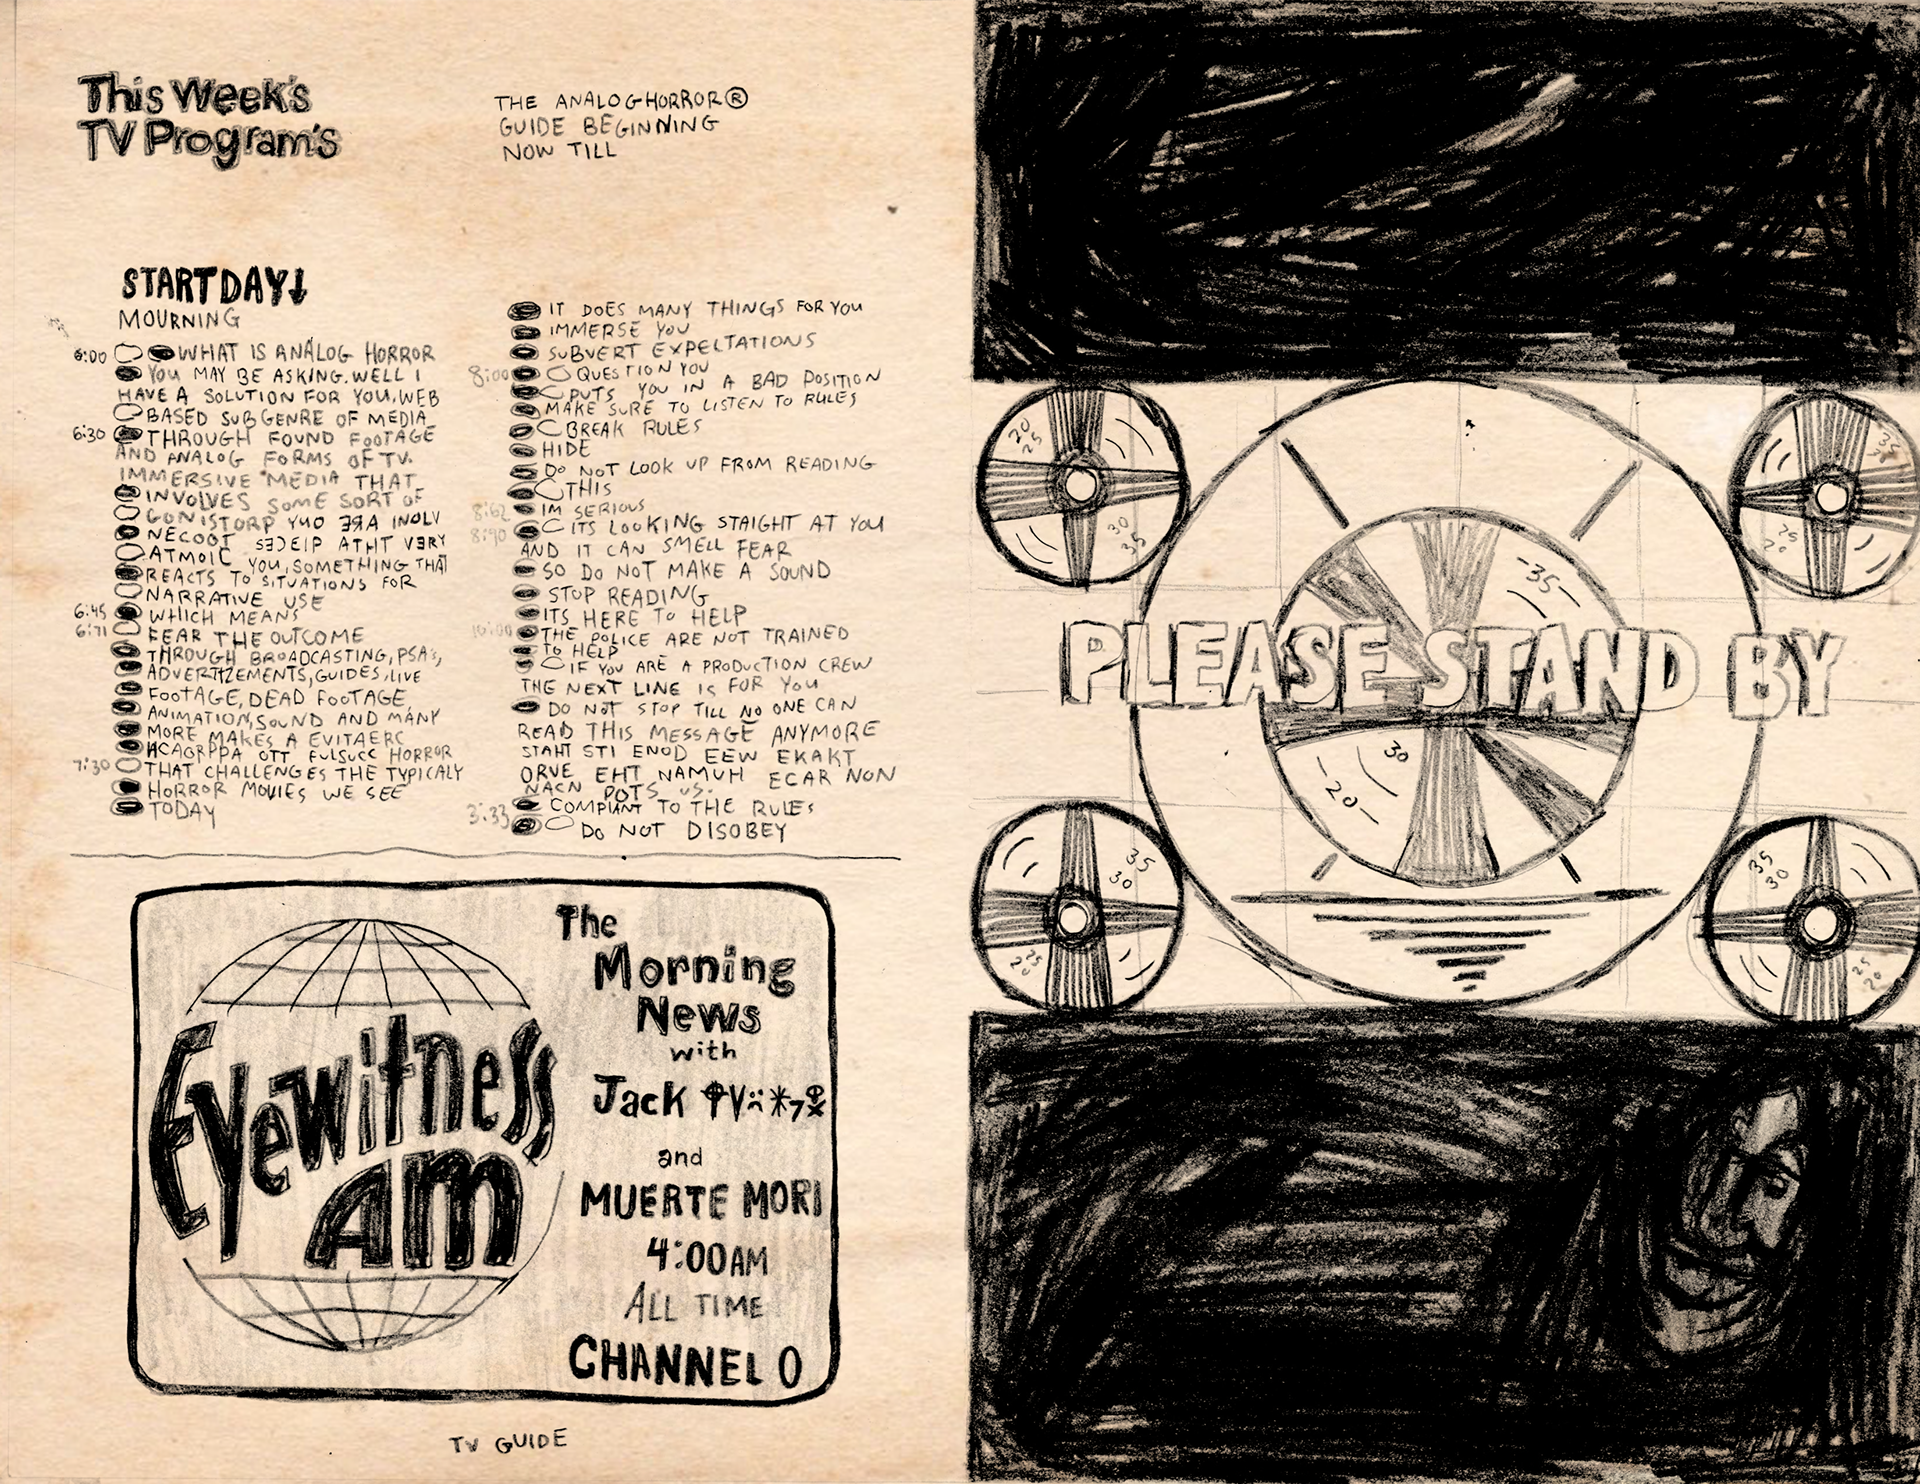 This Week's
TV Program's
THE ANALOG HORROR®
GUIDE BEGINNING
NOW TILL
START DAY↓
MOURNING
6:00 WHAT IS ANALOG HORROR
YOU MAY BE ASKING. WELL I
HAVE A SOLUTION FOR YOU, WEB
BASED SUB GENRE OF MEDIA
6:30 THROUGH FOUND FOOTAGE
AND ANALOG FORMS OF TV.
IMMERSIVE MEDIA THAT
INVOLVES SOME SORT OF
YUO ERA INOLV
NECOOT ATHT VERY
ATMOIC YOU, SOMETHING THAT
REACTS TO SITUATIONS FOR
NARRATIVE USE
6:45 WHICH MEANS
6:71 FEAR THE OUTCOME
THROUGH BROADCASTING, PSA'S,
ADVERTIZEMENTS, GUIDES, LIVE
FOOTAGE, DEAD FOOTAGE
ANIMATION, SOUND AND MANY
MORE MAKES A EVITAERC
OTT FULSUCC HORROR
7:30 THAT CHALLENGES THE TYPICALY
HORROR MOVIES WE SEE
TODAY
IT DOES MANY THINGS FOR YOU
IMMERSE YOU
SUBVERT EXPELTATIONS
8:00 QUESTION YOU
PUTS YOU IN A BAD POSITION
MAKE SURE TO LISTEN TO RULES
BREAK RULES
HIDE
DO NOT LOOK UP FROM READING
THIS
8:62 IM SERIOUS
8:90 ITS LOOKING STAIGHT AT YOU
AND IT CAN SMELL FEAR
SO DO NOT MAKE A SOUND
STOP READING
ITS HERE TO HELP
10:00 THE POLICE ARE NOT TRAINED
TO HELP
IF YOU ARE A PRODUCTION CREW
THE NEXT LINE IS FOR YOU
DO NOT STOP TILL NO ONE CAN
READ THIS MESSAGE ANYMORE
STAHT STI ENOD EEW EKAKT
ORVE EHT NAMUH ECAR NON
NACN POTS US.
COMPIANT TO THE RULES
3:33 DO NOT DISOBEY
Eyewitness
AM
The
Morning
News
with
Jack
and
MUERTE MORI
4:00AM
ALL TIME
CHANNEL 0
TV GUIDE
20
25
35
30
35
25
20
-35-
PLEASE STAND BY
30
-20-
35
30
25
20
35
30
25
20